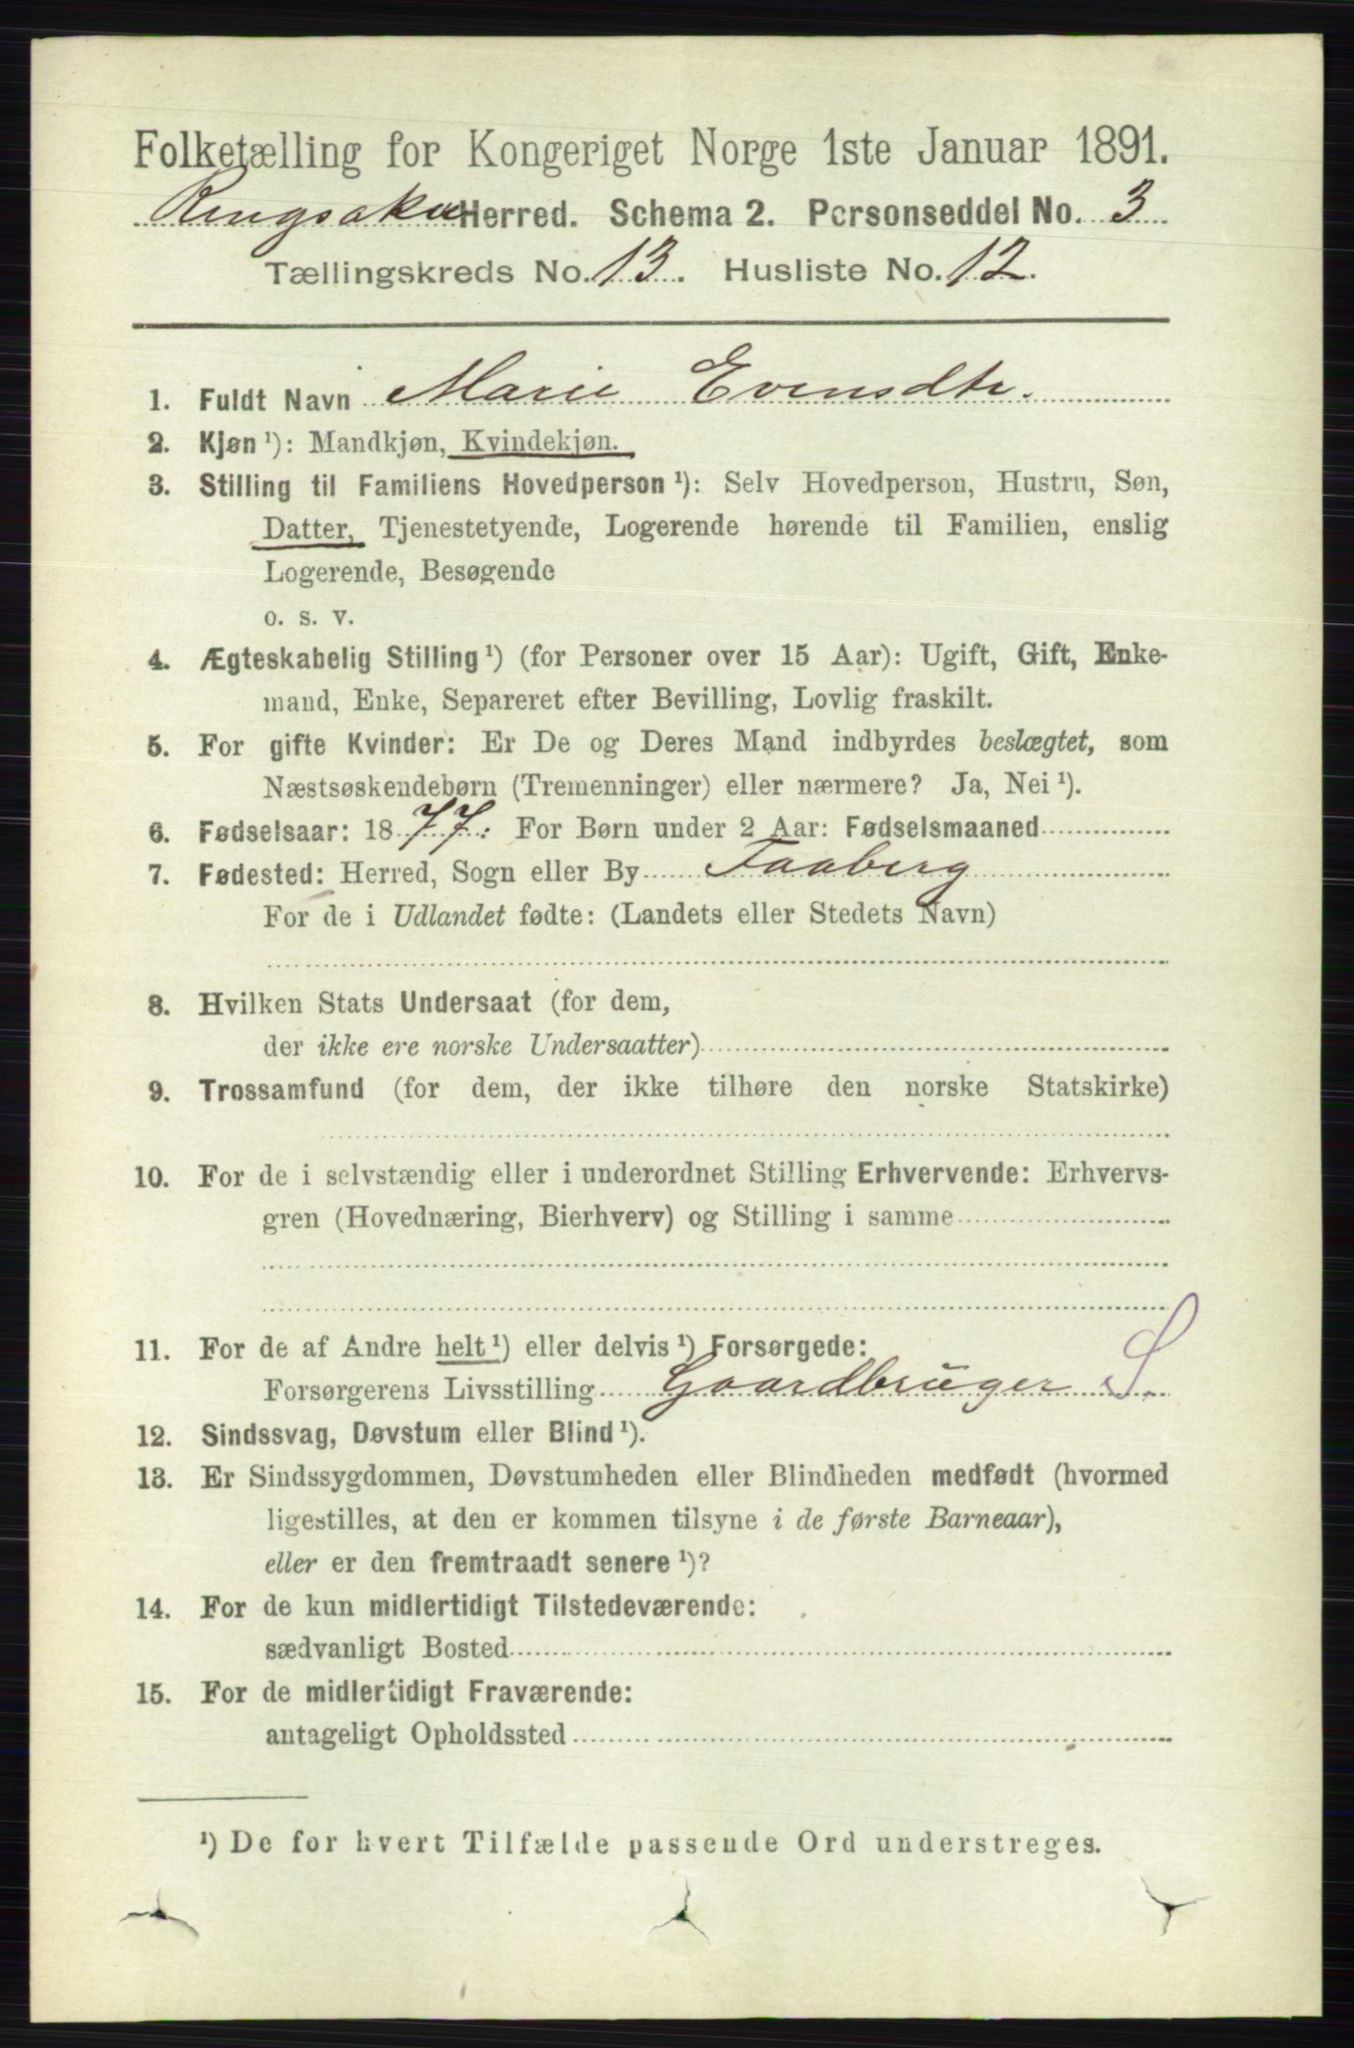 Folketælling for Kongeriget Norge 1ste Januar 1891.
Ringsaker Herred. Schema 2. Personseddel No. 3
Tællingskreds No. 13. Husliste No. 12.
1. Fuldt Navn Marie Evensdtr.
2. Kjøn ¹): Mandkjøn, Kvindekjøn.
3. Stilling til Familiens Hovedperson ¹): Selv Hovedperson, Hustru, Søn,
Datter, Tjenestetyende, Logerende hørende til Familien, enslig
Logerende, Besøgende
o. s. v.
4. Ægteskabelig Stilling ¹) (for Personer over 15 Aar): Ugift, Gift, Enke-
mand, Enke, Separeret efter Bevilling, Lovlig fraskilt.
5. For gifte Kvinder: Er De og Deres Mand indbyrdes beslægtet, som
Næstsøskendebørn (Tremenninger) eller nærmere? Ja, Nei ¹).
6. Fødselsaar: 1877: For Børn under 2 Aar: Fødselsmaaned
7. Fødested: Herred, Sogn eller By Faaberg
For de i Udlandet fødte: (Landets eller Stedets Navn)
8. Hvilken Stats Undersaat (for dem,
der ikke ere norske Undersaatter)
9. Trossamfund (for dem, der ikke tilhøre den norske Statskirke)
10. For de i selvstændig eller i underordnet Stilling Erhvervende: Erhvervs-
gren (Hovednæring, Bierhverv) og Stilling i samme
11. For de af Andre helt ¹) eller delvis ¹) Forsørgede:
Forsørgerens Livsstilling Gaardbruger S.
12. Sindssvag, Døvstum eller Blind ¹).
13. Er Sindssygdommen, Døvstumheden eller Blindheden medfødt (hvormed
ligestilles, at den er kommen tilsyne i de første Barneaar),
eller er den fremtraadt senere ¹)?
14. For de kun midlertidigt Tilstedeværende:
sædvanligt Bosted
15. For de midlertidigt Fraværende:
antageligt Opholdssted
¹) De for hvert Tilfælde passende Ord understreges.